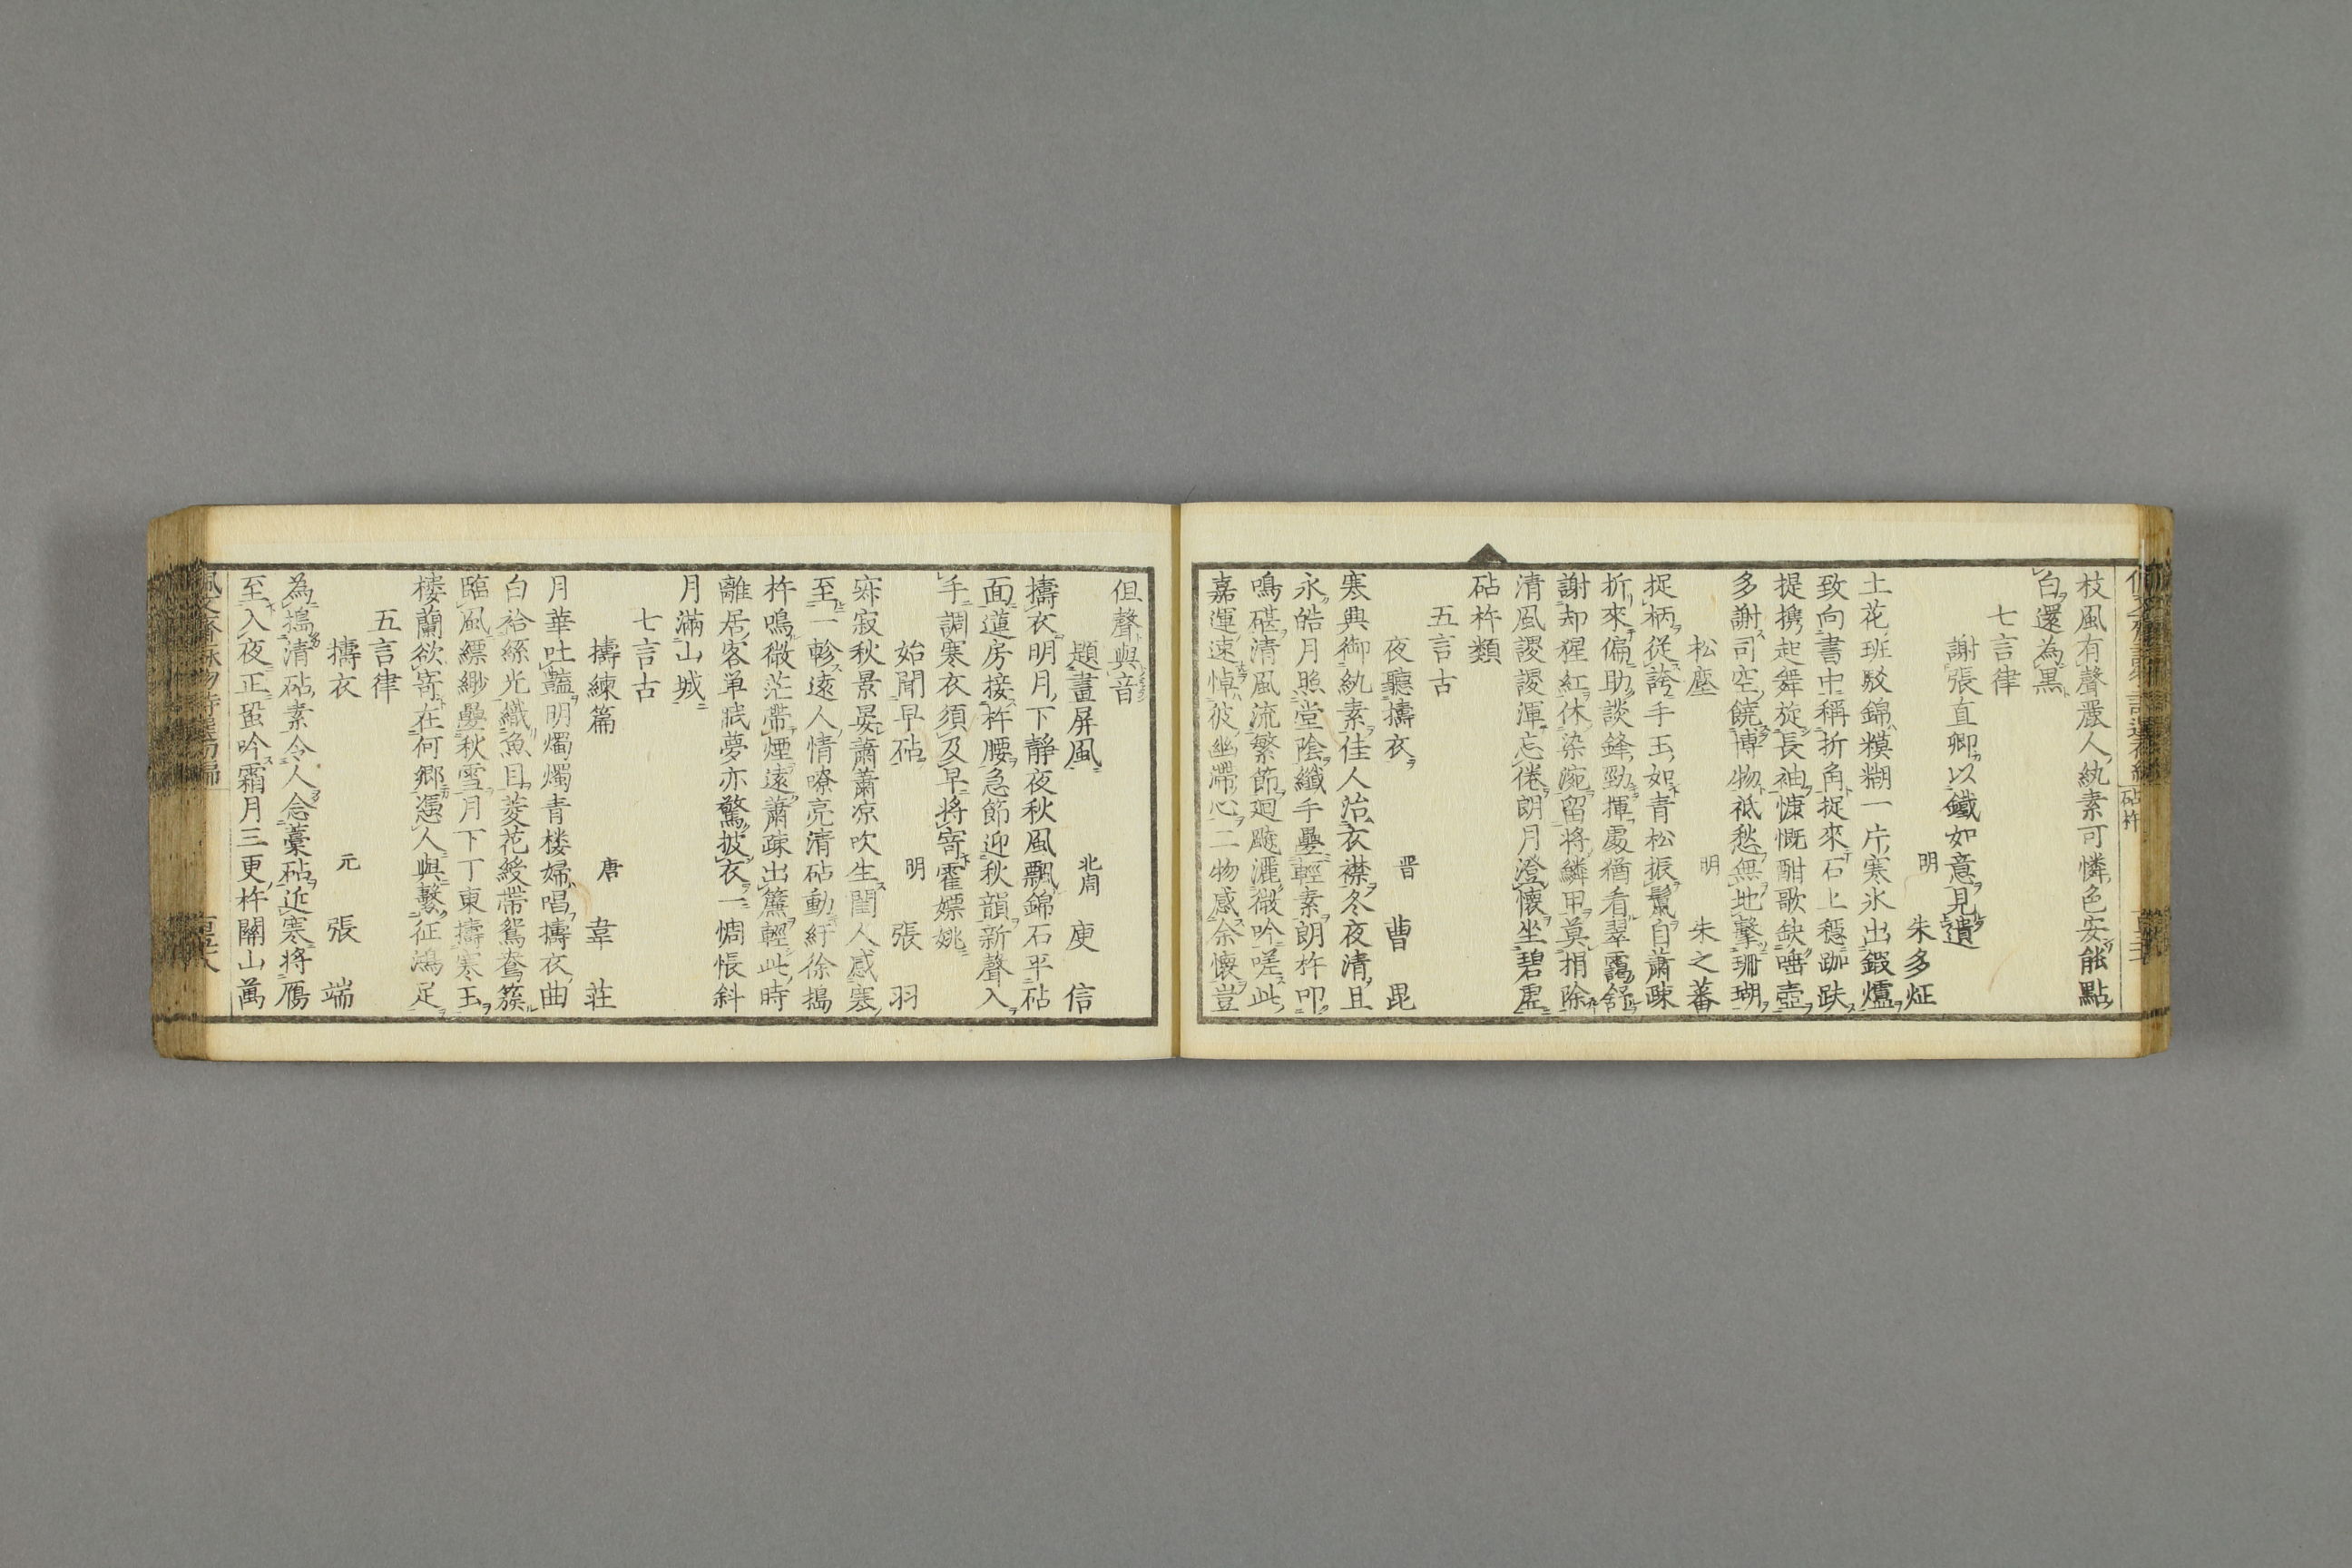 砧杵
枝風有聲嚴人紈素可憐色安能點
白還為黒
七言律
謝張直卿以鐵如意見遺
明 朱多炡
土花班駁錦糢糊一片寒氷出鍜爐
致向書中稱折角捉來石上穩跏趺
提携起舞旋長袖慷慨酣歌缺唾壺
多謝司空饒博物祗愁無地擊珊瑚
松麈
明 朱之蕃
捉柄從誇手玉如青松振鬣自蕭疎
折來偏助談鋒勁揮處猶看翠靄舒
謝却猩紅休染涴留將鱗甲莫捐除
清風謖謖渾忘倦朗月澄懷坐碧虛
砧杵類
五言古
夜聽擣衣
晋 曹毘
寒興御紈素佳人治衣襟冬夜清且
永皓月照堂陰纖手疊輕素朗杵叩
鳴碪清風流繁節廻飈灑微吟嗟此
嘉運速悼彼幽滯心二物感余懷豈
但聲與音
題畫屏風
北周 庾信
擣衣明月下靜夜秋風飄錦石平砧
面蓮房接杵腰急節迎秋韻新聲入
手調寒衣須及早將寄霍嫖姚
始聞早砧
明 張羽
寂寂秋景晏蕭蕭凉吹生閨人感寒
至一軫遠人情嘹亮清砧動紆徐搗
杵鳴微茫帶煙遠蕭疎出簾輕此時
離居客単眠夢亦驚披衣一惆悵斜
月滿山城
七言古
擣練篇
唐 韋莊
月華吐豔明燭燭青楼婦唱擣衣曲
白袷絲光織魚目菱花綬帶鴛鴦簇
臨風縹緲疊秋雪月下丁東擣寒玉
楼蘭欲寄在何鄉憑人與繫征鴻足
五言律
擣衣
元 張端
為搗清砧素令人念藁砧近寒將鴈
至入夜正蛩吟霜月三更杵關山萬